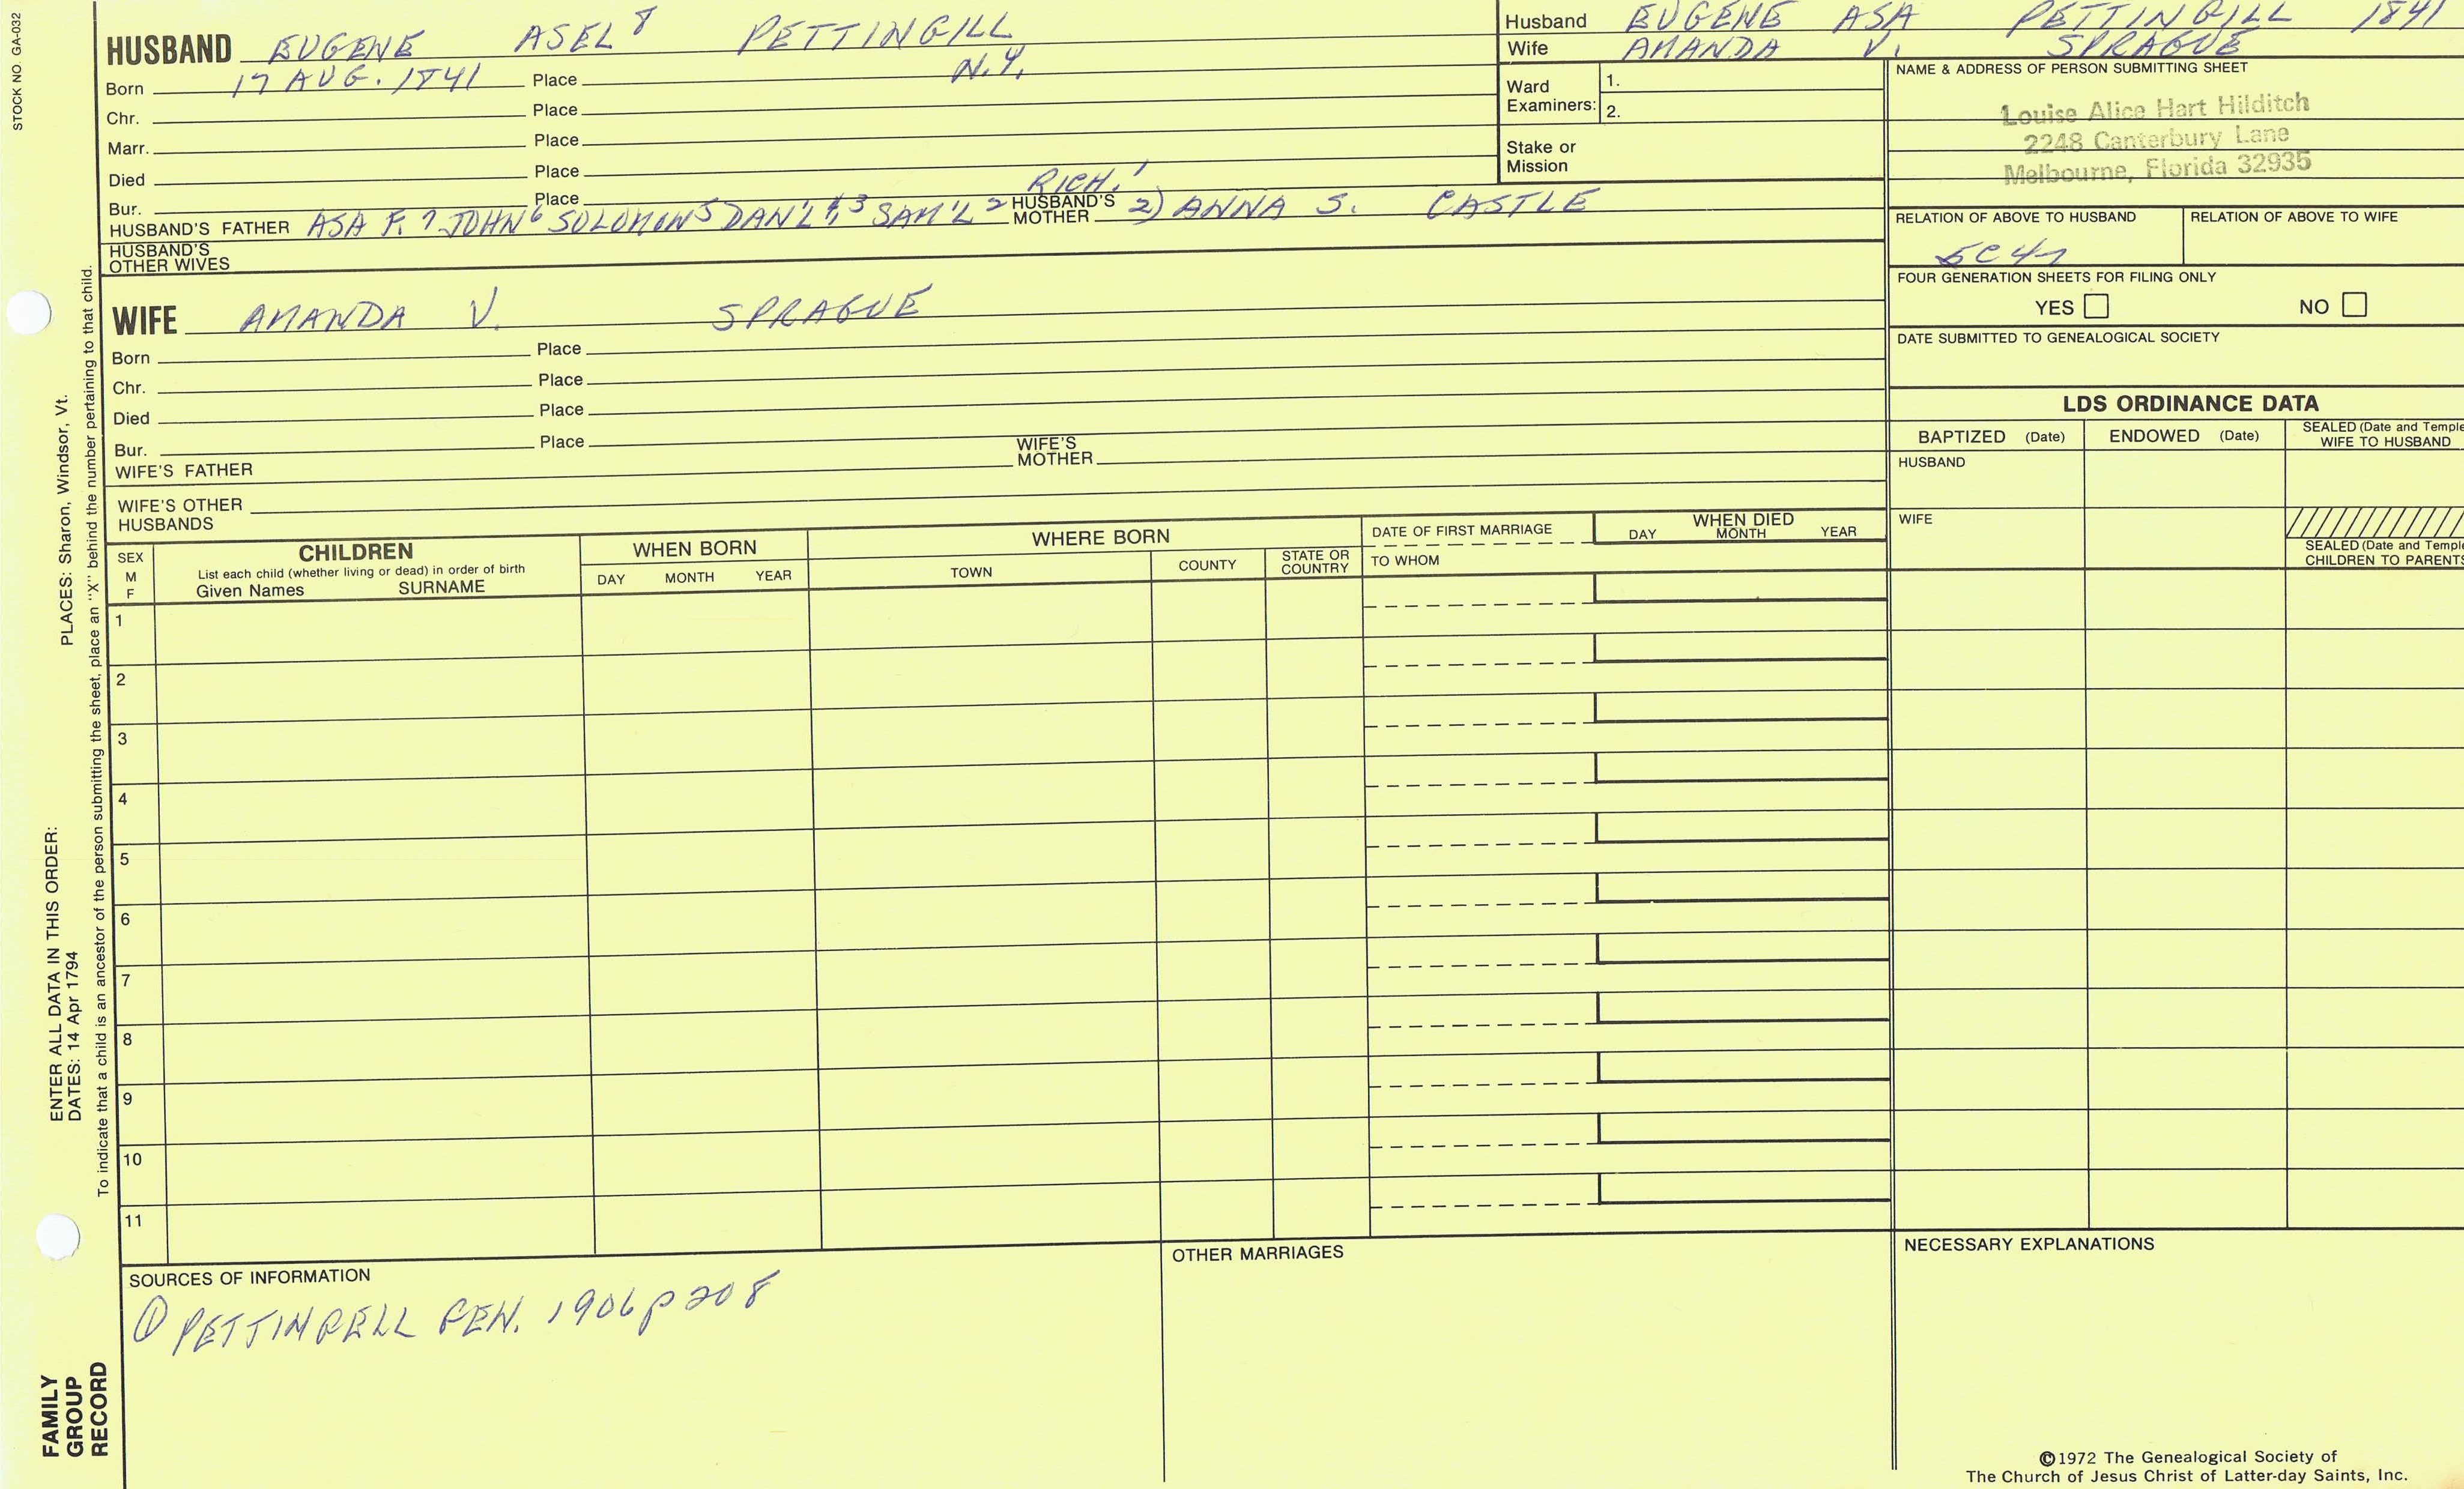 STOCK NO. GA-032
HUSBAND EUGENE ASEL 8 PETTINGILL
Born 17 AUG. 1841 Place N.Y.
Chr. Place
Marr. Place
Died Place
Bur. Place
HUSBAND'S FATHER ASA F. 7 JOHN 6 SOLOMON 5 DAN'L 4, 3 SAM'L 2 RICH. 1 HUSBAND'S MOTHER 2) ANNA S. CASTLE
HUSBAND'S OTHER WIVES
WIFE AMANDA V. SPRAGUE
Born Place
Chr. Place
Died Place
Bur. Place
WIFE'S FATHER WIFE'S MOTHER
WIFE'S OTHER HUSBANDS
Husband EUGENE ASA PETTINGILL 1841
Wife AMANDA V. SPRAGUE
Ward Examiners: 1.
2.
Stake or Mission
NAME & ADDRESS OF PERSON SUBMITTING SHEET
Louise Alice Hart Hilditch
2248 Canterbury Lane
Melbourne, Florida 32935
RELATION OF ABOVE TO HUSBAND RELATION OF ABOVE TO WIFE
FOUR GENERATION SHEETS FOR FILING ONLY
YES NO
DATE SUBMITTED TO GENEALOGICAL SOCIETY
LDS ORDINANCE DATA
BAPTIZED (Date) ENDOWED (Date) SEALED (Date and Temple
WIFE TO HUSBAND
HUSBAND
WIFE
SEALED (Date and Temple
CHILDREN TO PARENTS
SEX
M
F
CHILDREN
List each child (whether living or dead) in order of birth
Given Names SURNAME
WHEN BORN
DAY MONTH YEAR
WHERE BORN
TOWN COUNTY STATE OR COUNTRY
DATE OF FIRST MARRIAGE
TO WHOM
WHEN DIED
DAY MONTH YEAR
1
2
3
4
5
6
7
8
9
10
11
SOURCES OF INFORMATION
① PETTINGELL GEN. 1906 p 208
OTHER MARRIAGES
NECESSARY EXPLANATIONS
©1972 The Genealogical Society of
The Church of Jesus Christ of Latter-day Saints, Inc.
FAMILY
GROUP
RECORD
ENTER ALL DATA IN THIS ORDER:
DATES: 14 Apr 1794 PLACES: Sharon, Windsor, Vt.
To indicate that a child is an ancestor of the person submitting the sheet, place an "X" behind the number pertaining to that child.